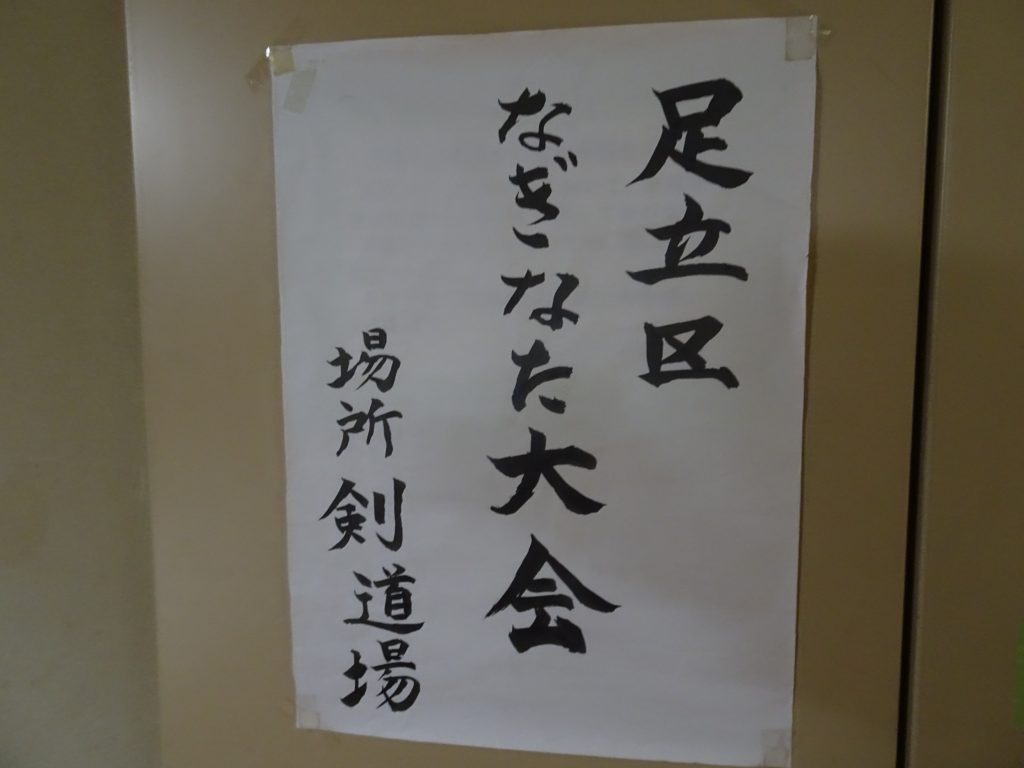 足立区
なぎなた大会
場所 剣道場